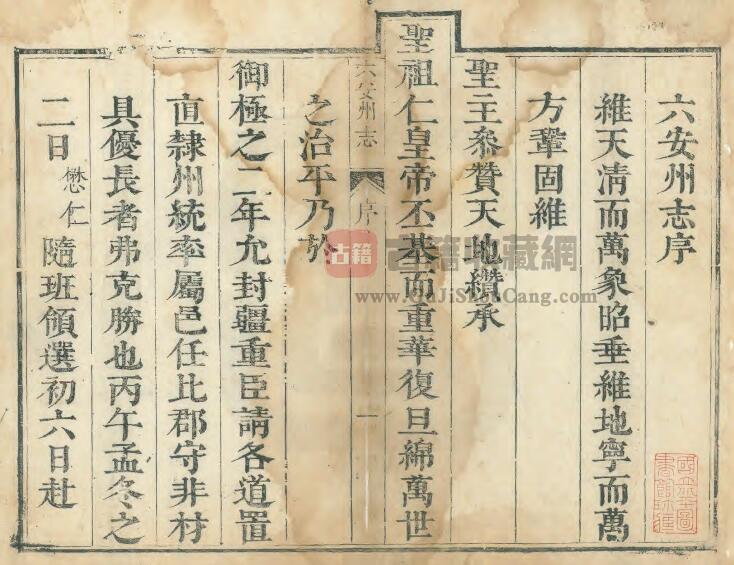 六安州志序
維天清而萬象昭垂維地寧而萬
方鞏固維
聖主叅贊天地纘承
聖祖仁皇帝丕基而重華復旦綿萬世
六安州志 序 一
之治平乃於
御極之二年允封疆重臣請各道置
直隸州統率屬邑任比郡守非材
具優長者弗克勝也丙午孟冬之
二日懋仁隨班領選初六日赴
古籍 古籍 藏網
www.GuJiShuCang.com